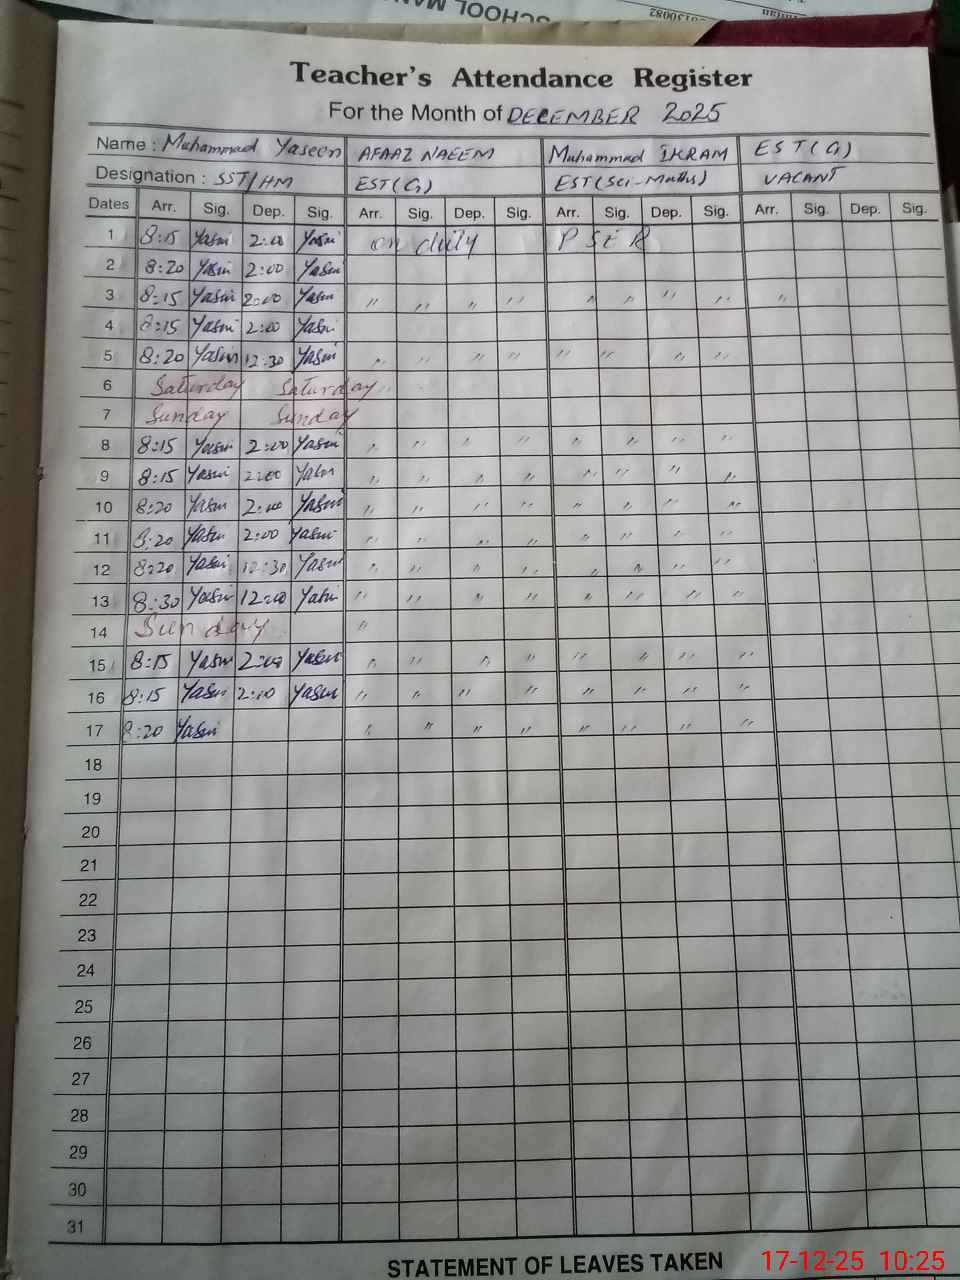 SCHOOL MAN
20130082
Teacher's Attendance Register
For the Month of DECEMBER 2025
Name : Muhammad Yaseen AFAAZ NAEEM Muhammad IKRAM EST(G)
Designation : SST/HM EST(G) EST(Sci-Maths) VACANT
Dates Arr. Sig. Dep. Sig. Arr. Sig. Dep. Sig. Arr. Sig. Dep. Sig. Arr. Sig. Dep. Sig.
1 8:15 Yasin 2:00 Yasin on duty PSER
2 8:20 Yasin 2:00 Yasin
3 8:15 Yasin 2:00 Yasin " " " " " " " " "
4 8:15 Yasin 2:00 Yasin
5 8:20 Yasin 12:30 Yasin " " " " " " " "
6 Saturday Saturday "
7 Sunday Sunday
8 8:15 Yasin 2:00 Yasin " " " " " " " "
9 8:15 Yasin 2:00 Yasin " " " " " " " "
10 8:20 Yasin 2:00 Yasin " " " " " " " "
11 8:20 Yasin 2:00 Yasin " " " " " " " "
12 8:20 Yasin 12:30 Yasin " " " " " " " "
13 8:30 Yasin 12:00 Yasin " " " " " " " "
14 Sunday "
15 8:15 Yasin 2:00 Yasin " " " " " " " "
16 8:15 Yasin 2:00 Yasin " " " " " " " "
17 8:20 Yasin " " " " " " " "
18
19
20
21
22
23
24
25
26
27
28
29
30
31
STATEMENT OF LEAVES TAKEN
17-12-25 10:25